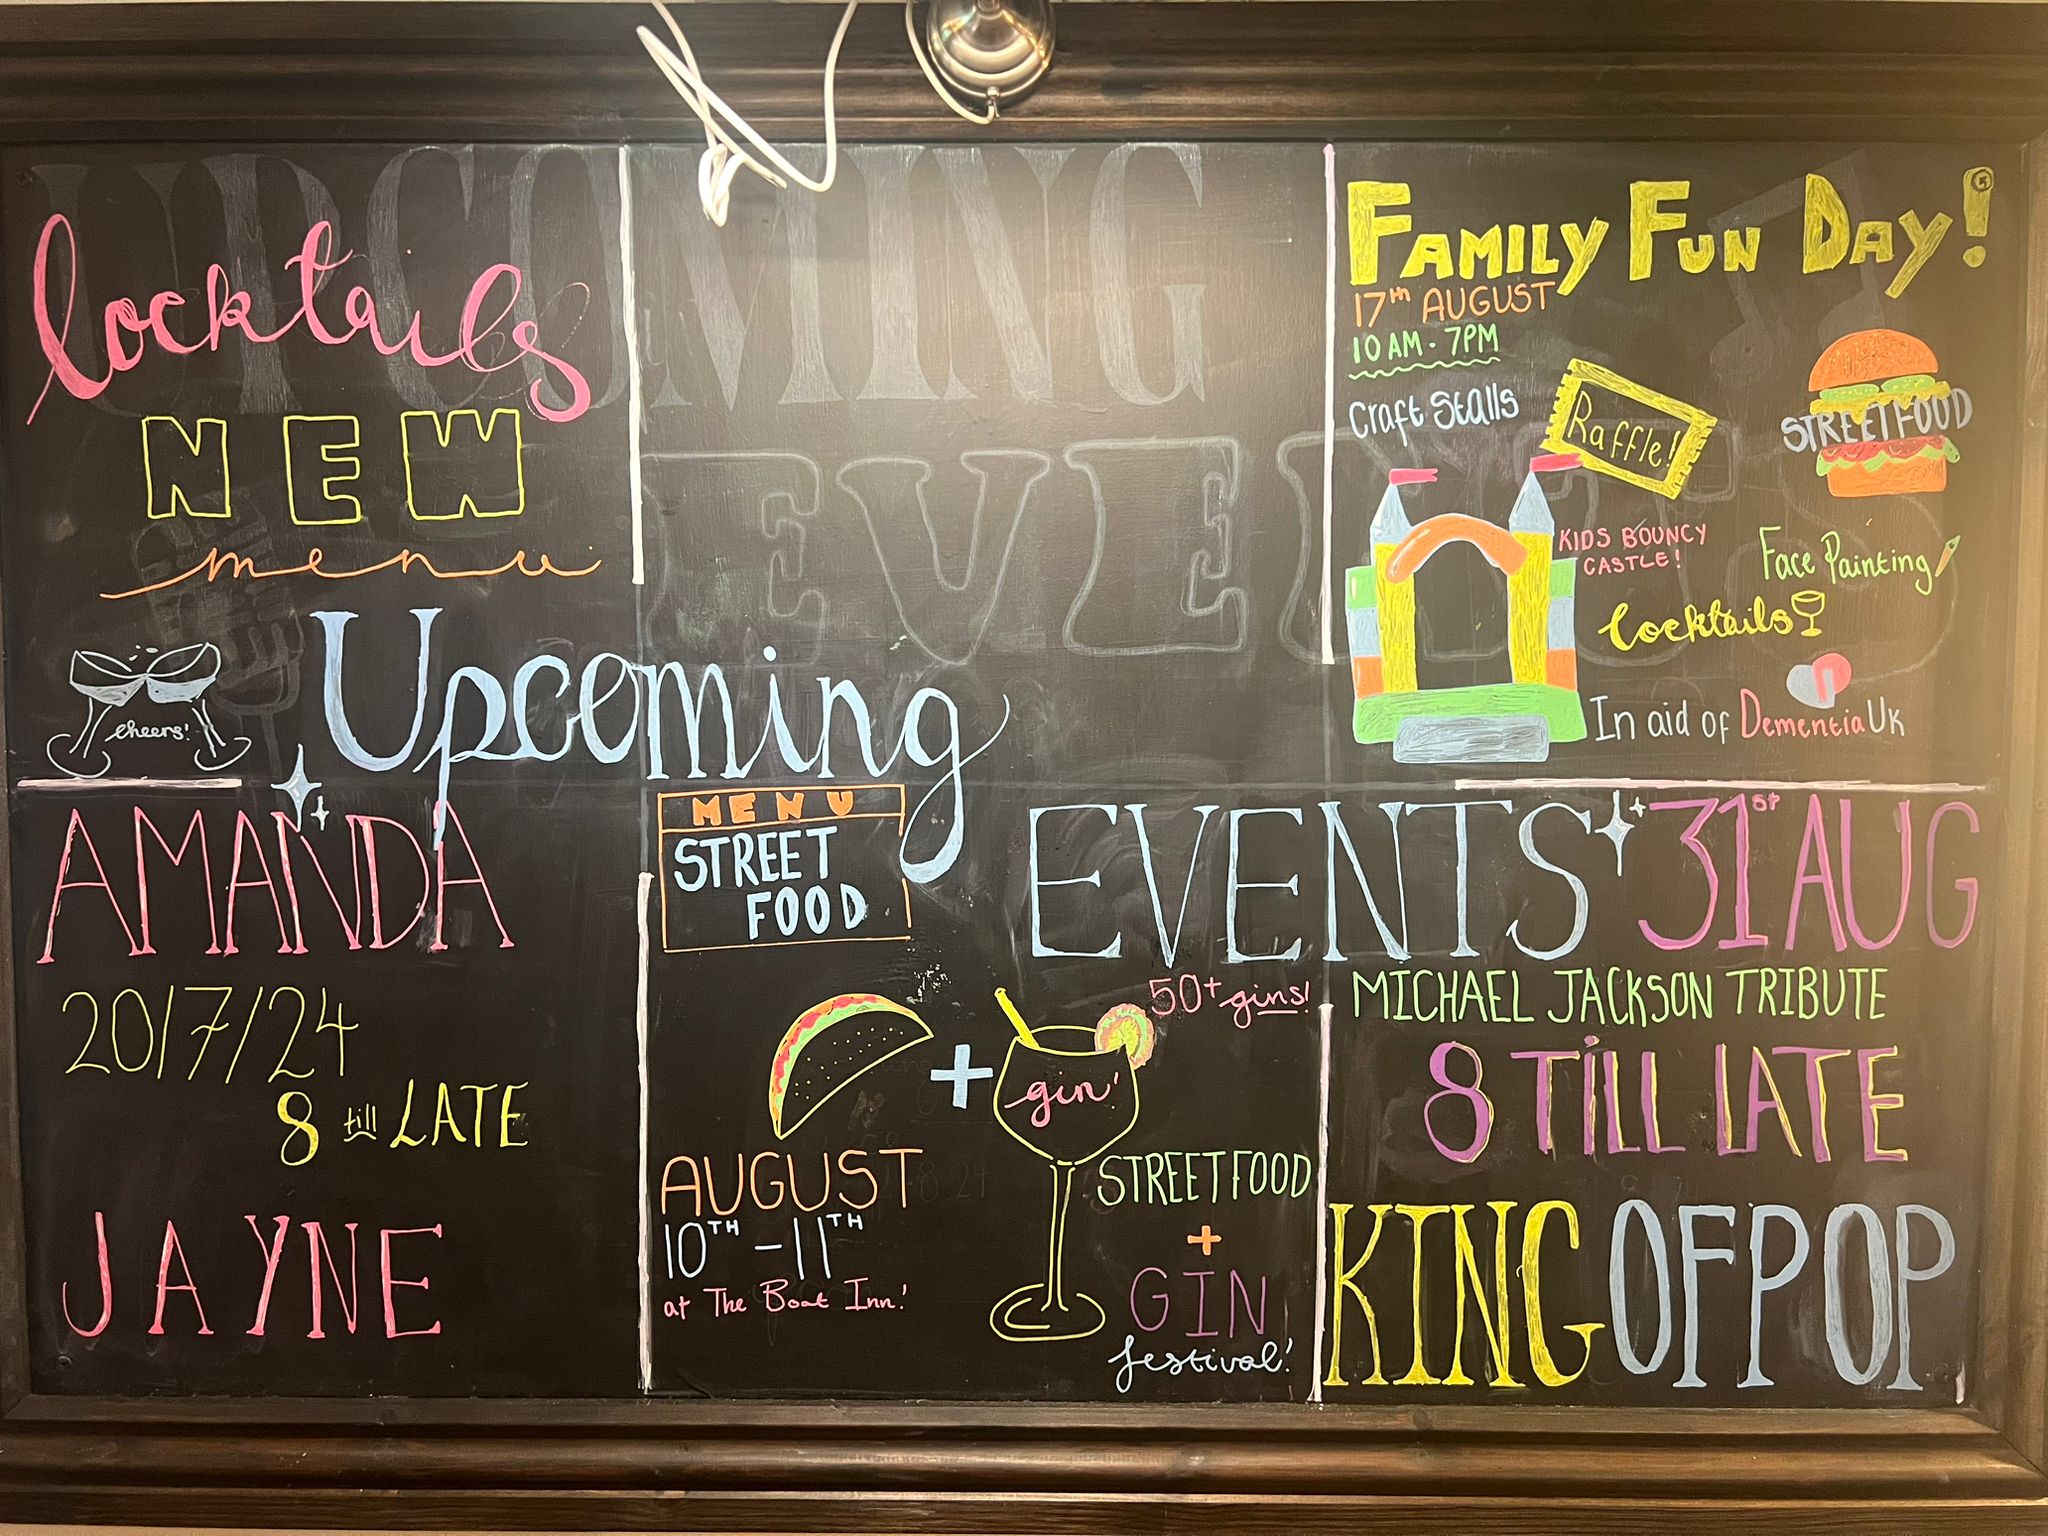 UPCOMING
EVENTS
Cocktails
NEW
menu
cheers!
Upcoming
EVENTS
FAMILY FUN DAY!
17TH AUGUST
10AM - 7PM
Craft Stalls
Raffle!
STREET FOOD
KIDS BOUNCY
CASTLE!
Face Painting
Cocktails
In aid of Dementia UK
AMANDA
20/7/24
8 till LATE
JAYNE
MENU
STREET
FOOD
50+ gins!
gin!
AUGUST
10TH - 11TH
at The Boat Inn!
STREET FOOD
+
GIN
festival!
31ST AUG
MICHAEL JACKSON TRIBUTE
8 TILL LATE
KING OF POP